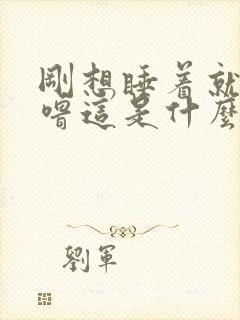 剛想睡着就
喟這是什麼
劉軍